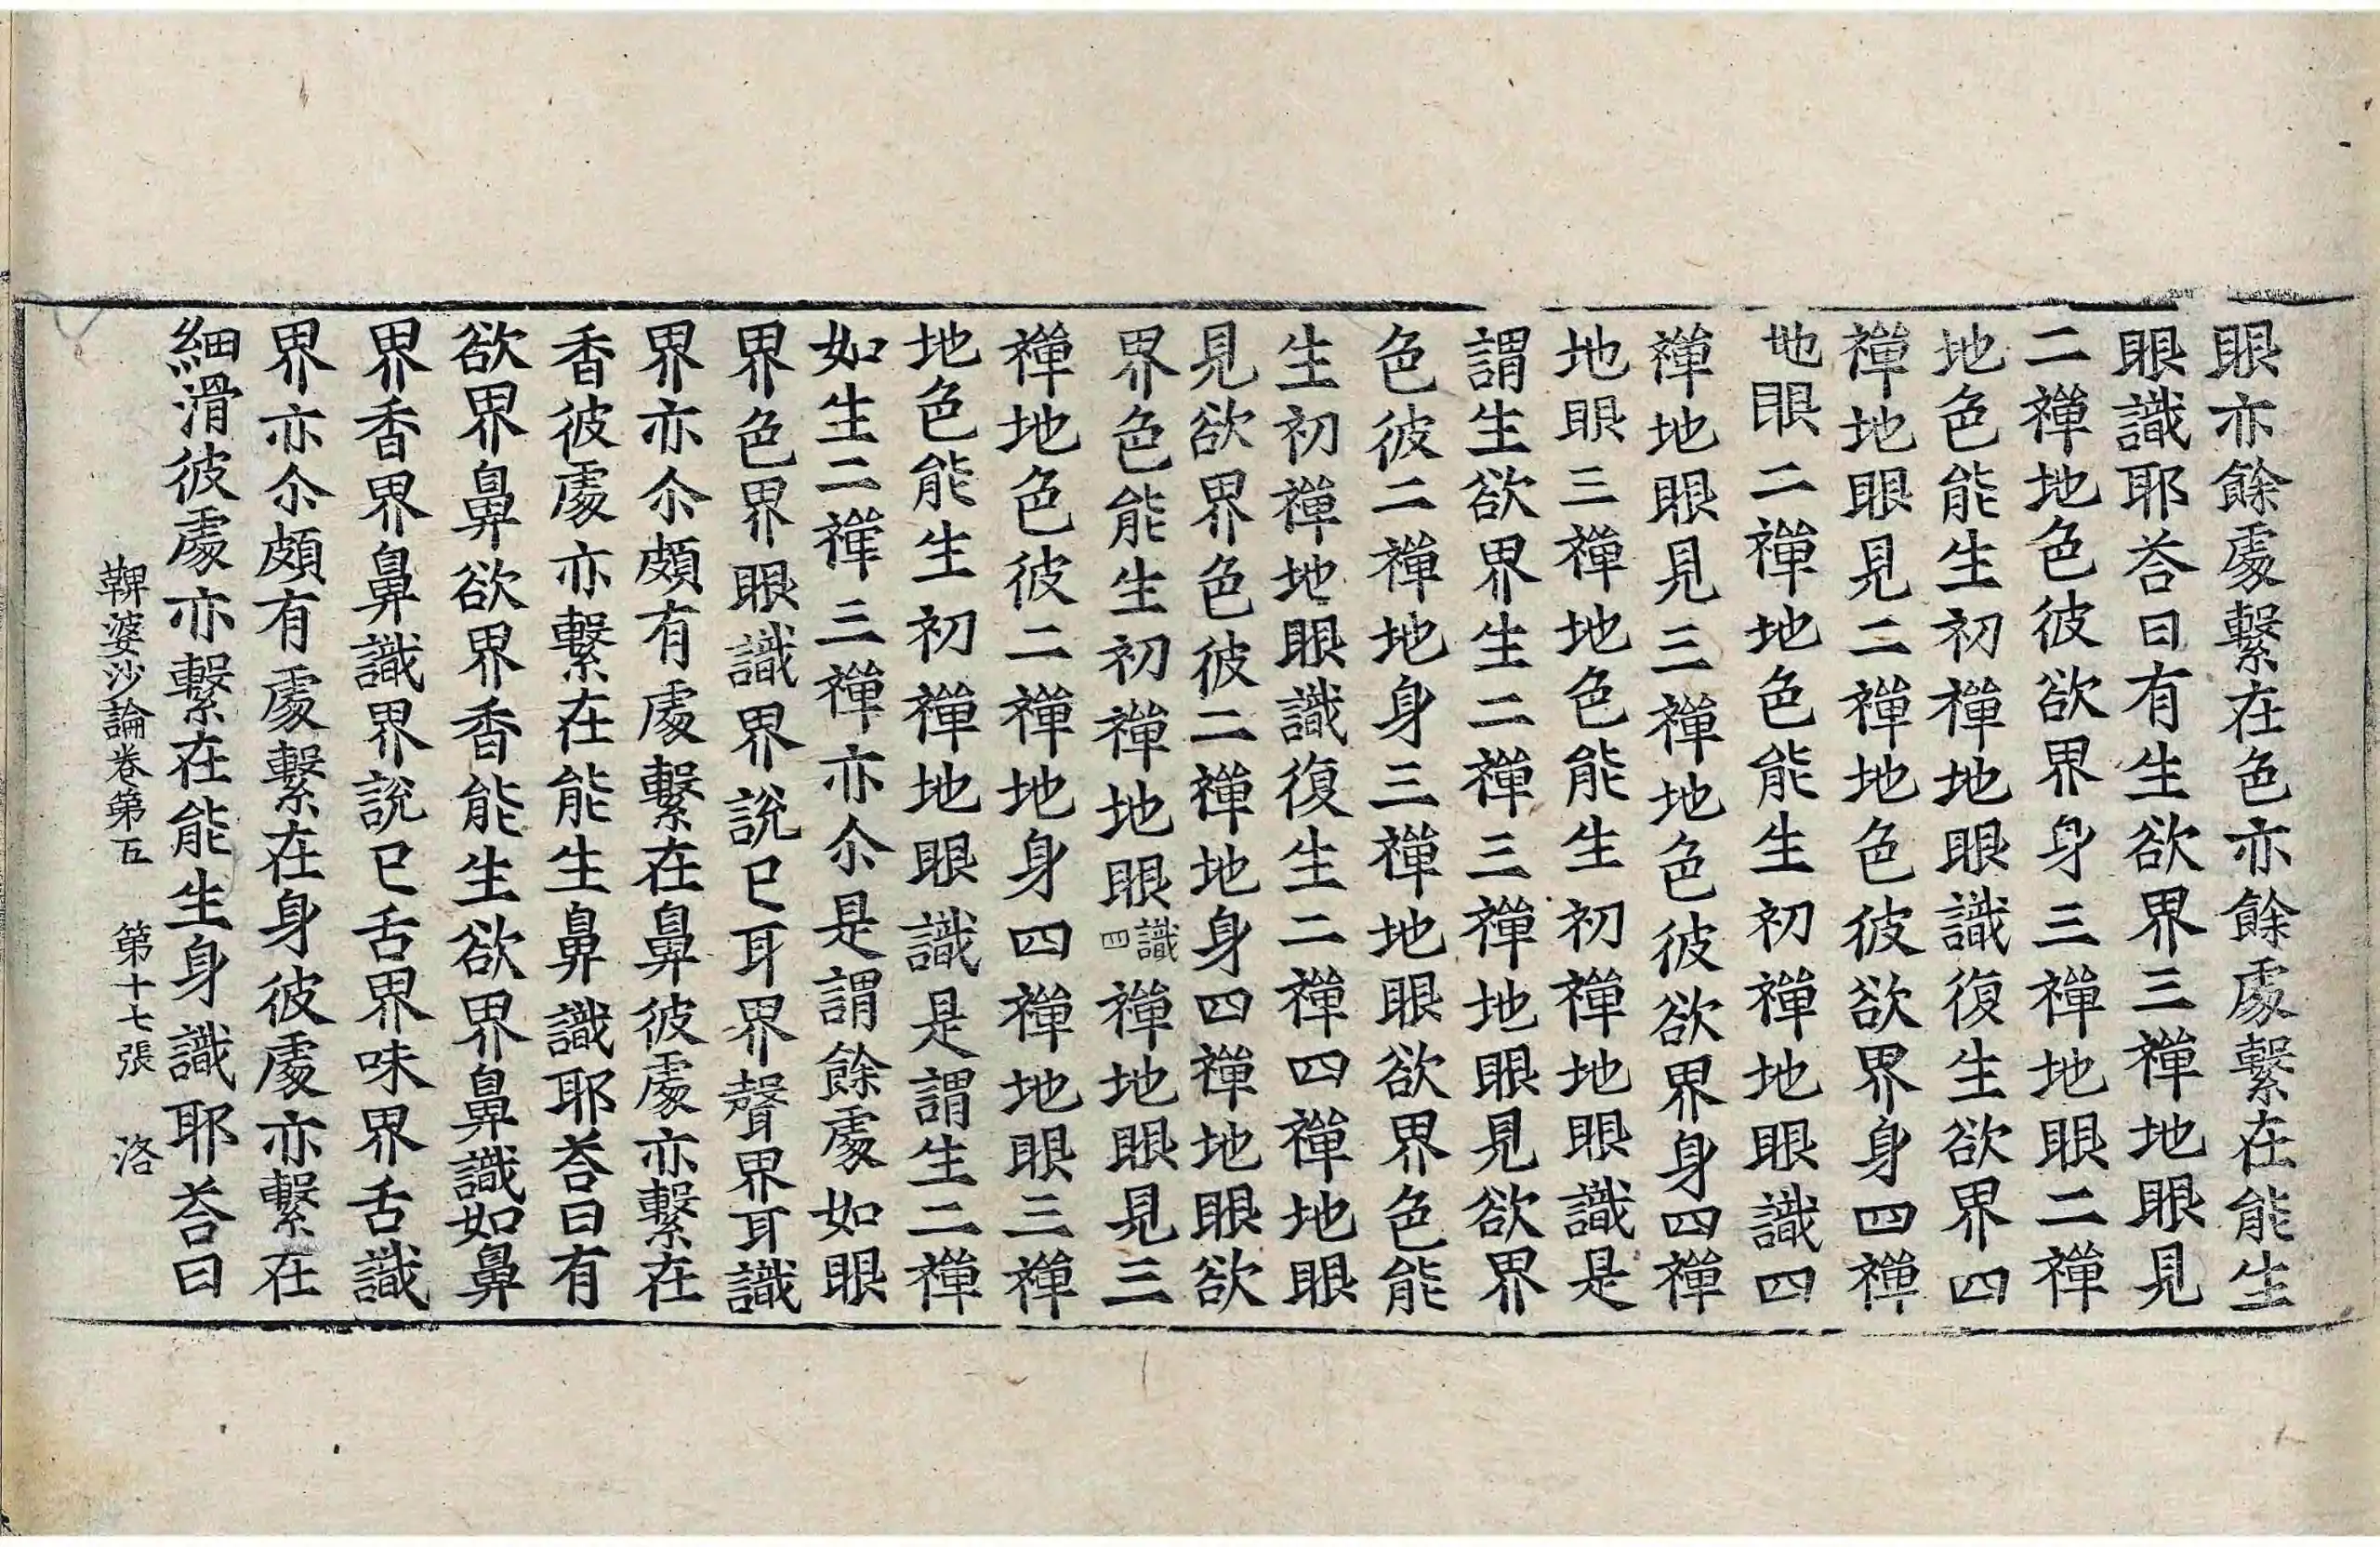 眼亦餘處繫在色亦餘處繫在能生
眼識耶荅曰有生欲界三禪地眼見
二禪地色彼欲界身三禪地眼二禪
地色能生初禪地眼識復生欲界四
禪地眼見二禪地色彼欲界身四禪
地眼二禪地色能生初禪地眼識四
禪地眼見三禪地色彼欲界身四禪
地眼三禪地色能生初禪地眼識是
謂生欲界生二禪三禪地眼見欲界
色彼二禪地身三禪地眼欲界色能
生初禪地眼識復生二禪四禪地眼
見欲界色彼二禪地身四禪地眼欲
界色能生初禪地眼識四禪地眼見三
禪地色彼二禪地身四禪地眼三禪
地色能生初禪地眼識是謂生二禪
如生二禪三禪亦尒是謂餘處如眼
界色界眼識界說已耳界聲界耳識
界亦尒頗有處繫在鼻彼處亦繫在
香彼處亦繫在能生鼻識耶荅曰有
欲界鼻欲界香能生欲界鼻識如鼻
界香界鼻識界說已舌界味界舌識
界亦尒頗有處繫在身彼處亦繫在
細滑彼處亦繫在能生身識耶荅曰
鞞婆沙論卷第五 第十七張 洛